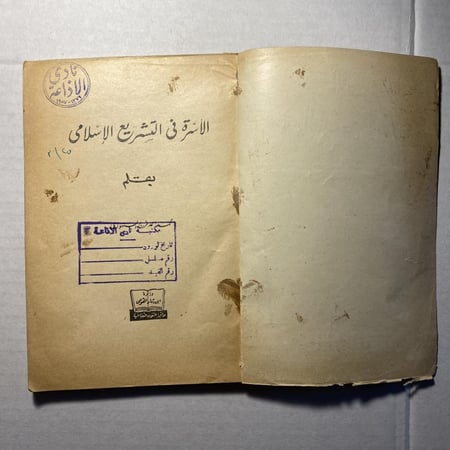 نادي
الإذاعة
الأسرة في التشريع الإسلامي
بقلم
مكتبة نادي الإذاعة
تاريخ الورود
رقم مسلسل
رقم القيد
وزارة